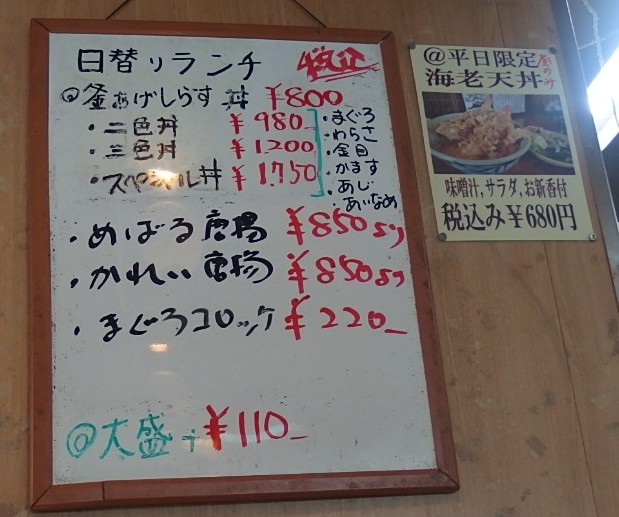 日替りランチ 税込
◎釜あげしらす丼 ¥800
・二色丼 ¥980
・三色丼 ¥1.200
・スペシャル丼 ¥1.750
・まぐろ
・わらさ
・金目
・かます
・あじ
・あいなめ
・めばる唐揚 ¥850より
・かれい唐揚 ¥850より
・まぐろコロッケ ¥220
@大盛+¥110
@平日限定 昼のみ
海老天丼
味噌汁,サラダ,お新香付
税込み¥680円